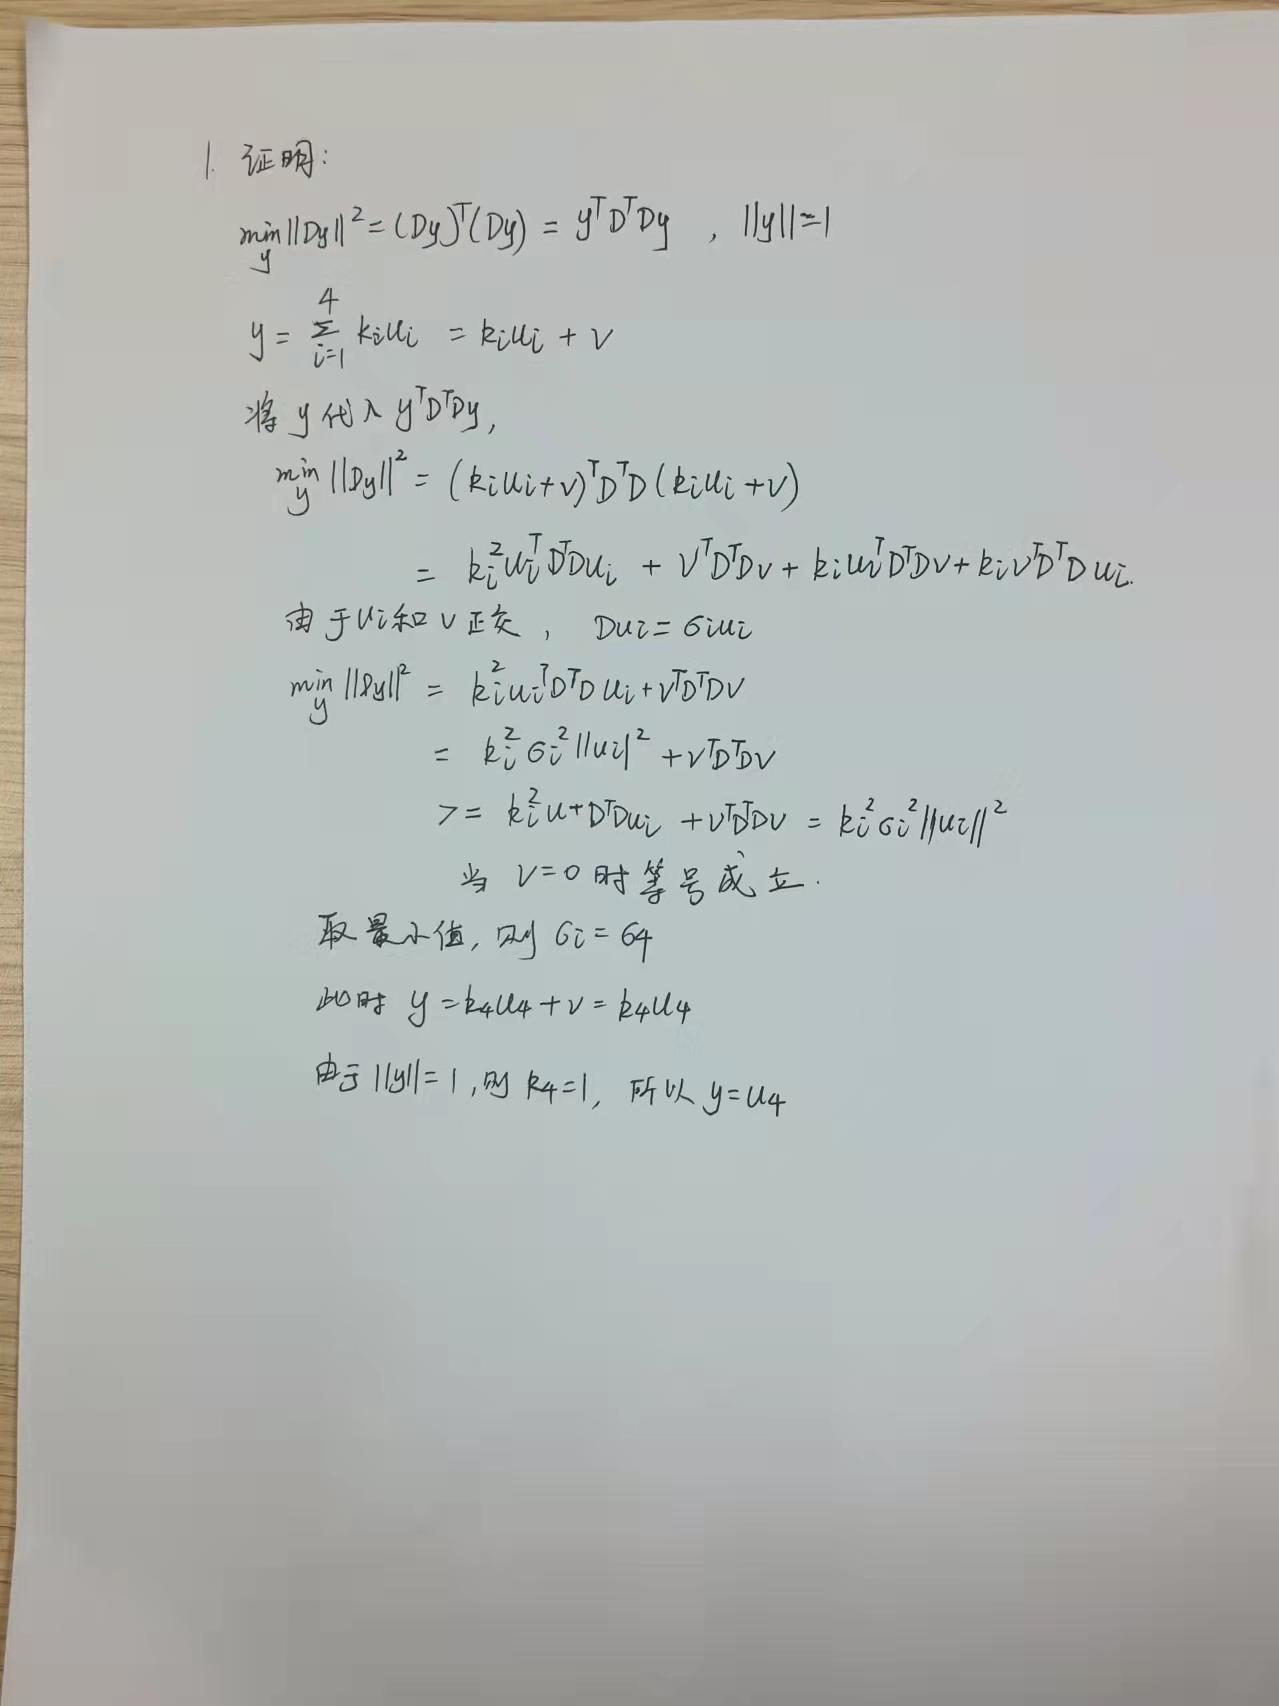 1. 证明:
min_y ||Dy||² = (Dy)ᵀ(Dy) = yᵀDᵀDy , ||y||=1
y = Σ_{i=1}^{4} kᵢuᵢ = kᵢuᵢ + v
将 y 代入 yᵀDᵀDy,
min_y ||Dy||² = (kᵢuᵢ+v)ᵀDᵀD(kᵢuᵢ+v)
= kᵢ²uᵢᵀDᵀDuᵢ + vᵀDᵀDv + kᵢuᵢᵀDᵀDv + kᵢvᵀDᵀDuᵢ.
由于uᵢ和v正交, Duᵢ=σᵢuᵢ
min_y ||Dy||² = kᵢ²uᵢᵀDᵀDuᵢ + vᵀDᵀDv
= kᵢ²σᵢ²||uᵢ||² + vᵀDᵀDv
>= kᵢ²u+DᵀDuᵢ + vᵀDᵀDv = kᵢ²σᵢ²||uᵢ||²
当 v=0 时等号成立.
取最小值, 则 σᵢ=σ₄
此时 y=k₄u₄+v=k₄u₄
由于||y||=1,则 k₄=1, 所以 y=u₄